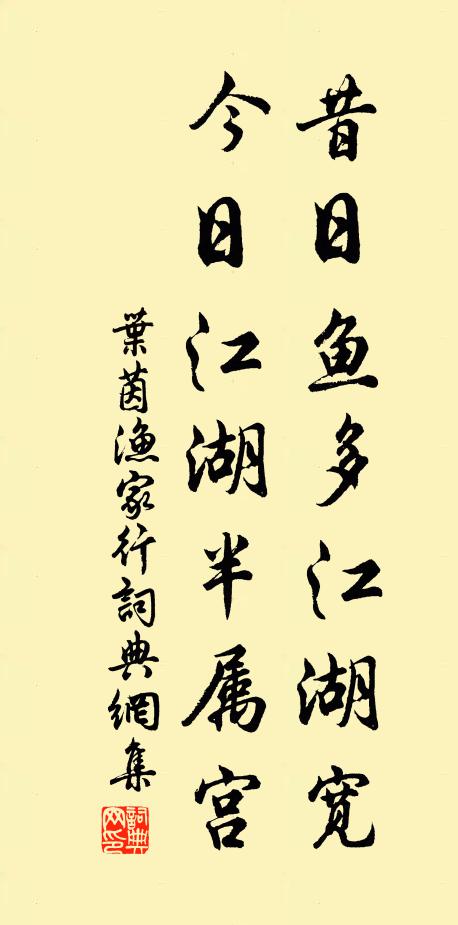 昔日鱼多江湖宽
今日江湖半属宫
葉茵漁家行詞典網集
詞典網印